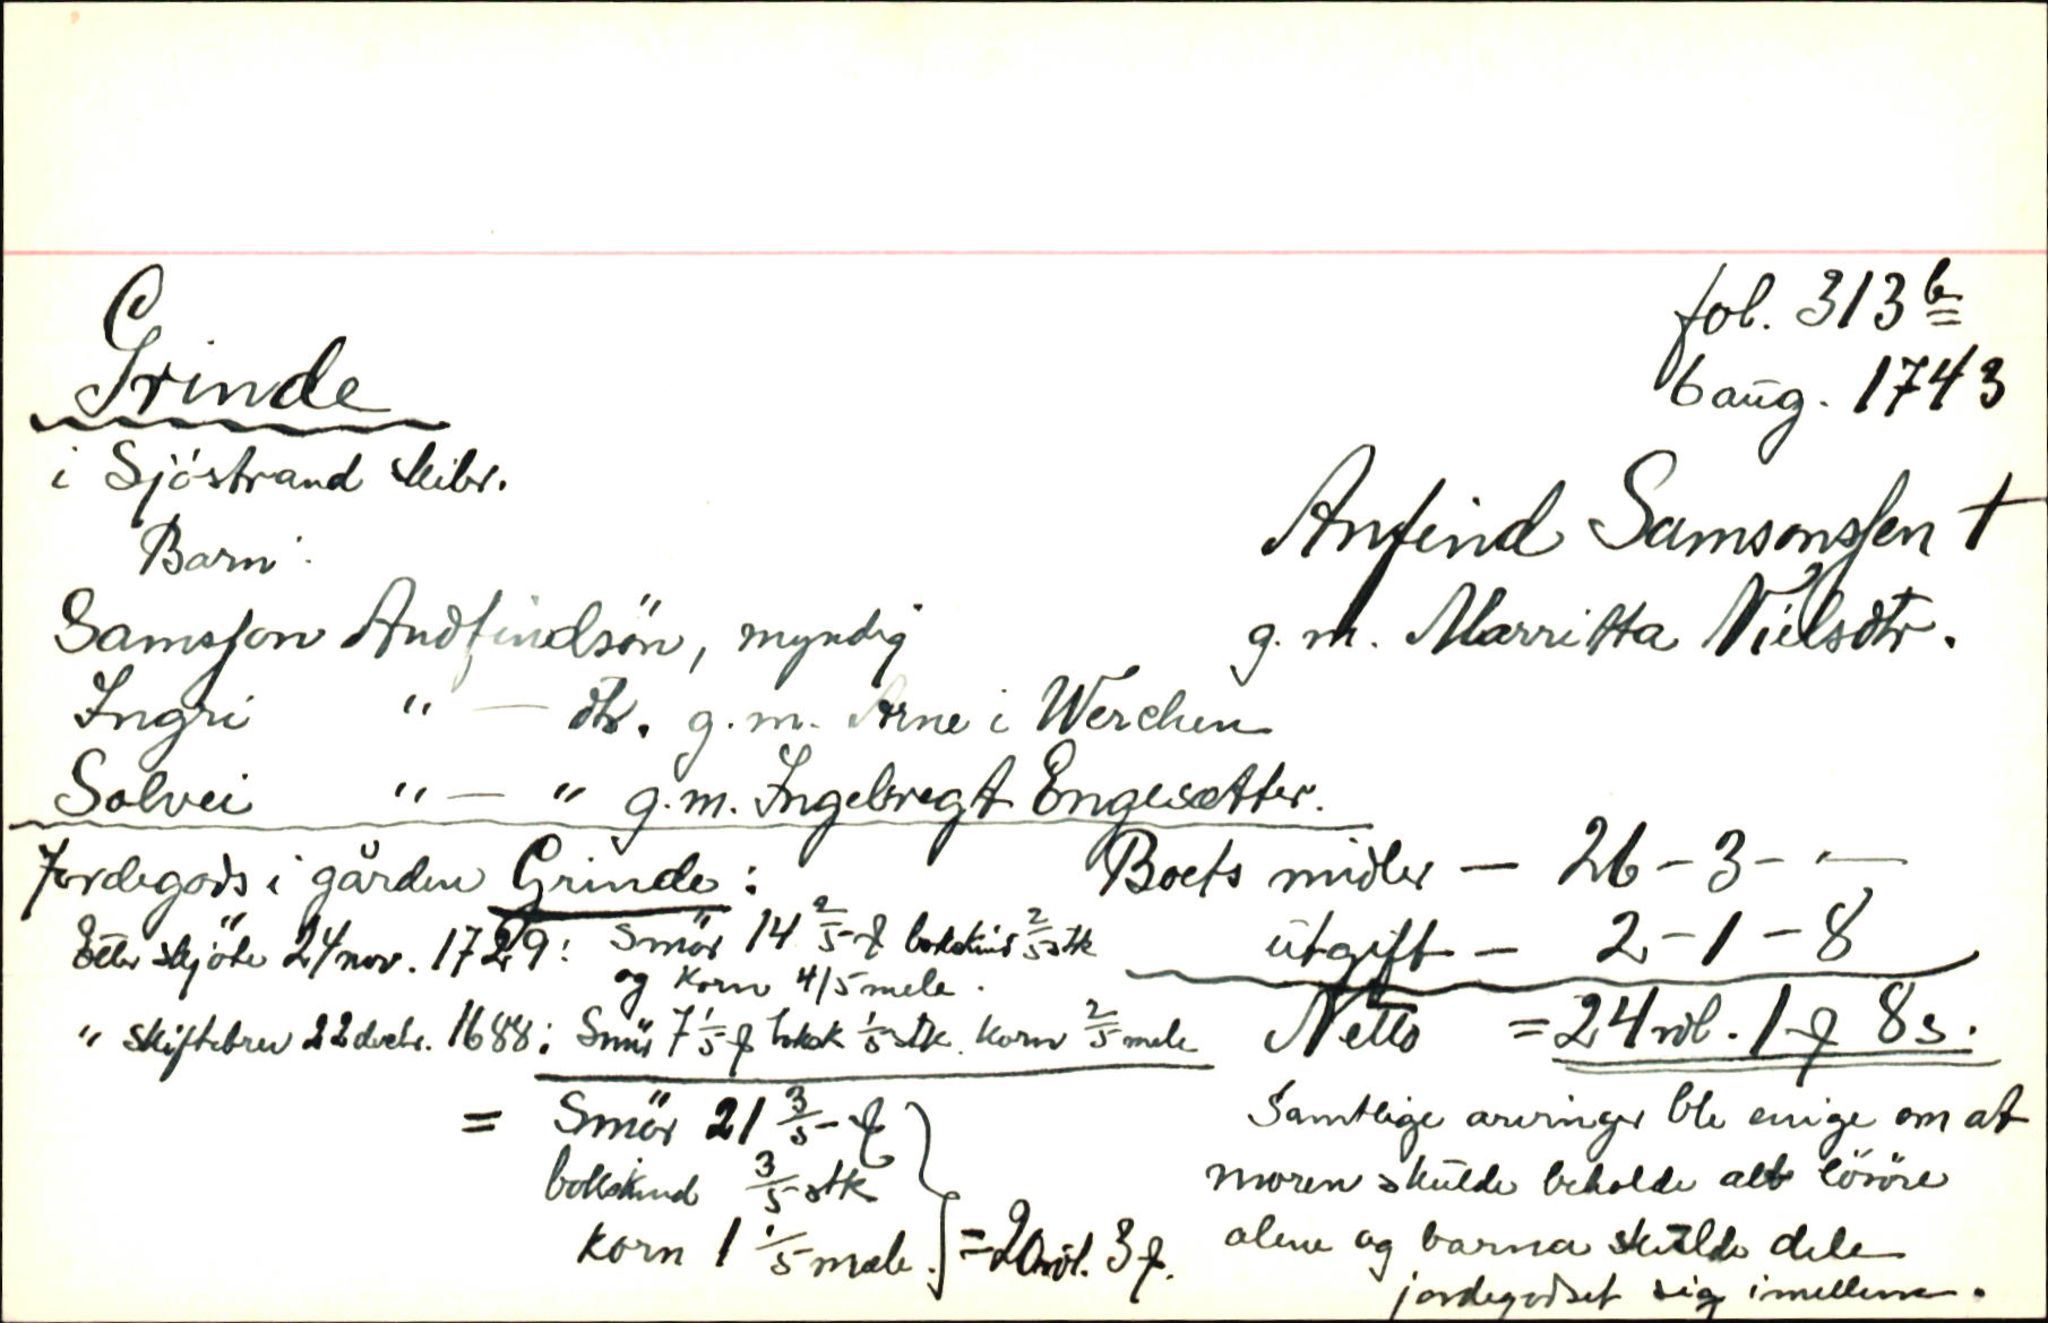 Grinde
fol. 313 b
6 aug. 1743
i Sjöstrand skibr.
Anfind Samsonssen †
g. m. Marritta Nielsdtr.
Barn:
Samsson Andfindsön, myndig
Ingri " — dtr. g. m. Arne i Werchen
Solvei " — " g. m. Ingebregt Engesætter.
Jordegods i gården Grinde:
Etter skjöte 24 nov. 1729: Smör 14 2/5 ƒ bokskind 2/5 stk
og korn 4/5 mele.
" skiftebrev 22 decbr. 1688: Smör 7 1/5 ƒ boksk 1/5 stk. korn 2/5 mele
= Smör 21 3/5 ƒ
bokskind 3/5 stk
korn 1 1/5 mæle. = 20 rdl. 3 ƒ.
Boets midler — 26 - 3 - —
utgift — 2 - 1 - 8
Netto = 24 rdl. 1 ƒ 8 s.
Samtlige arvinger ble enige om at
moren skulde beholde alt lösöre
alene og barna skulde dele
jordegodset sig imellem.